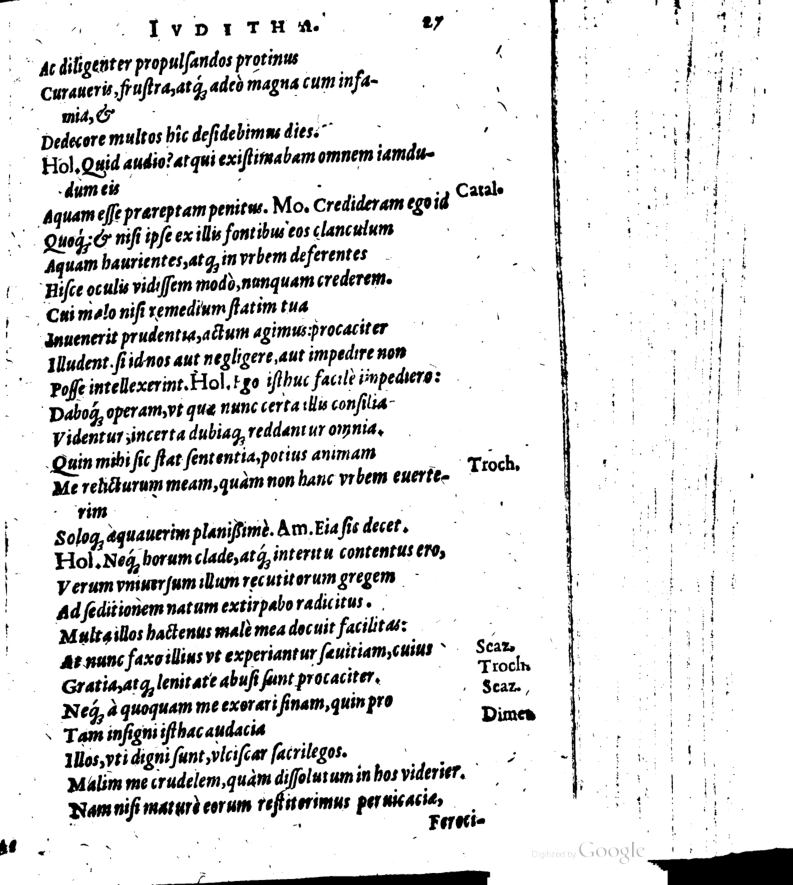 IVDITHA. 27
Ac diligenter propulſandos protinus
Curaueris, fruſtra, atq́ꝫ adeò magna cum infa-
mia, &
Dedecore multos hîc deſidebimus dies.
Hol. Quid audio? atqui exiſtimabam omnem iamdu-
dum eis
Aquam eſſe præreptam penitus. Mo. Credideram ego id Catal.
Quoq́ꝫ; & niſi ipſe ex illis fontibus eos clanculum
Aquam haurientes, atqꝫ in vrbem deferentes
Hiſce oculis vidiſſem modò, nunquam crederem.
Cui malo niſi remedium ſtatim tua
Inuenerit prudentia, actum agimus: procaciter
Illudent. ſi id nos aut negligere, aut impedire non
Poſſe intellexerint. Hol. Ego iſthuc facilè impediero:
Daboq́ꝫ operam, vt quæ nunc certa illis conſilia
Videntur, incerta dubiaqꝫ reddantur omnia.
Quin mihi ſic ſtat ſententia, potius animam
Me relicturum meam, quàm non hanc vrbem euerte- Troch.
rim
Soloqꝫ æquauerim planiſſimè. Am. Eia ſis decet.
Hol. Neq́ꝫ horum clade, atq́ꝫ interitu contentus ero,
Verum vniuerſum illum recutitorum gregem
Ad ſeditionem natum extirpabo radicitus.
Multa illos hactenus malè mea docuit facilitas:
At nunc faxo illius vt experiantur ſæuitiam, cuius Scaz.
Gratia, atqꝫ lenitate abuſi ſunt procaciter. Troch.
Neq́ꝫ à quoquam me exorari ſinam, quin pro Scaz.
Tam inſigni iſthac audacia Dimet
Illos, vti digni ſunt, vlciſcar ſacrilegos.
Malim me crudelem, quàm diſſolutum in hos viderier.
Nam niſi maturè eorum reſtiterimus peruicacia,
Feroci-
Digitized by Google